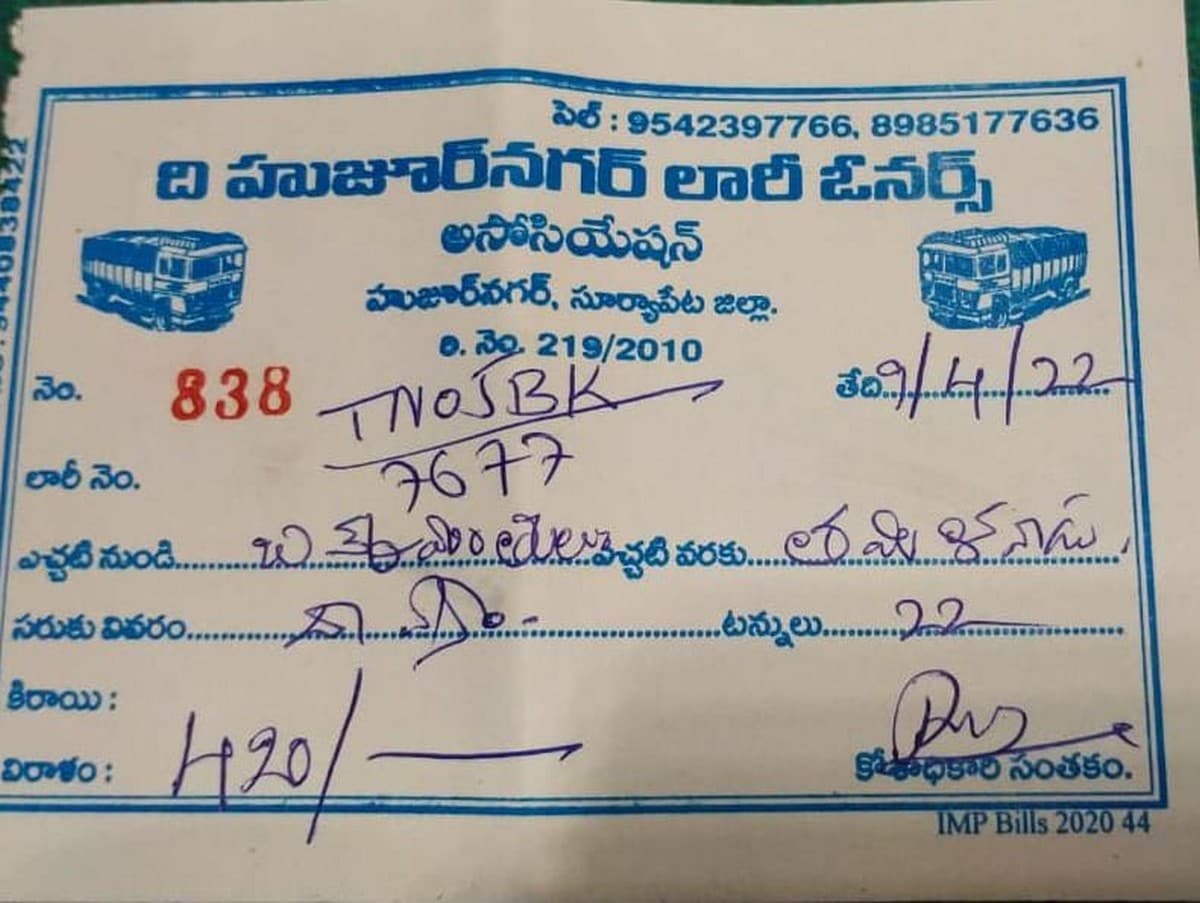 సెల్ : 9542397766, 8985177636
ది హుజూర్‌నగర్ లారీ ఓనర్స్
అసోసియేషన్
హుజూర్‌నగర్, సూర్యాపేట జిల్లా.
రి. నెం. 219/2010
నెం. 838 తేది 9/4/22
TN05BK
లారీ నెం. 7677
ఎచ్చటి నుండి ఎచ్చటి వరకు తమిళనాడు.
సరుకు వివరం టన్నులు 22
కిరాయి :
విరాళం : 420/
కోశాధికారి సంతకం.
IMP Bills 2020 44